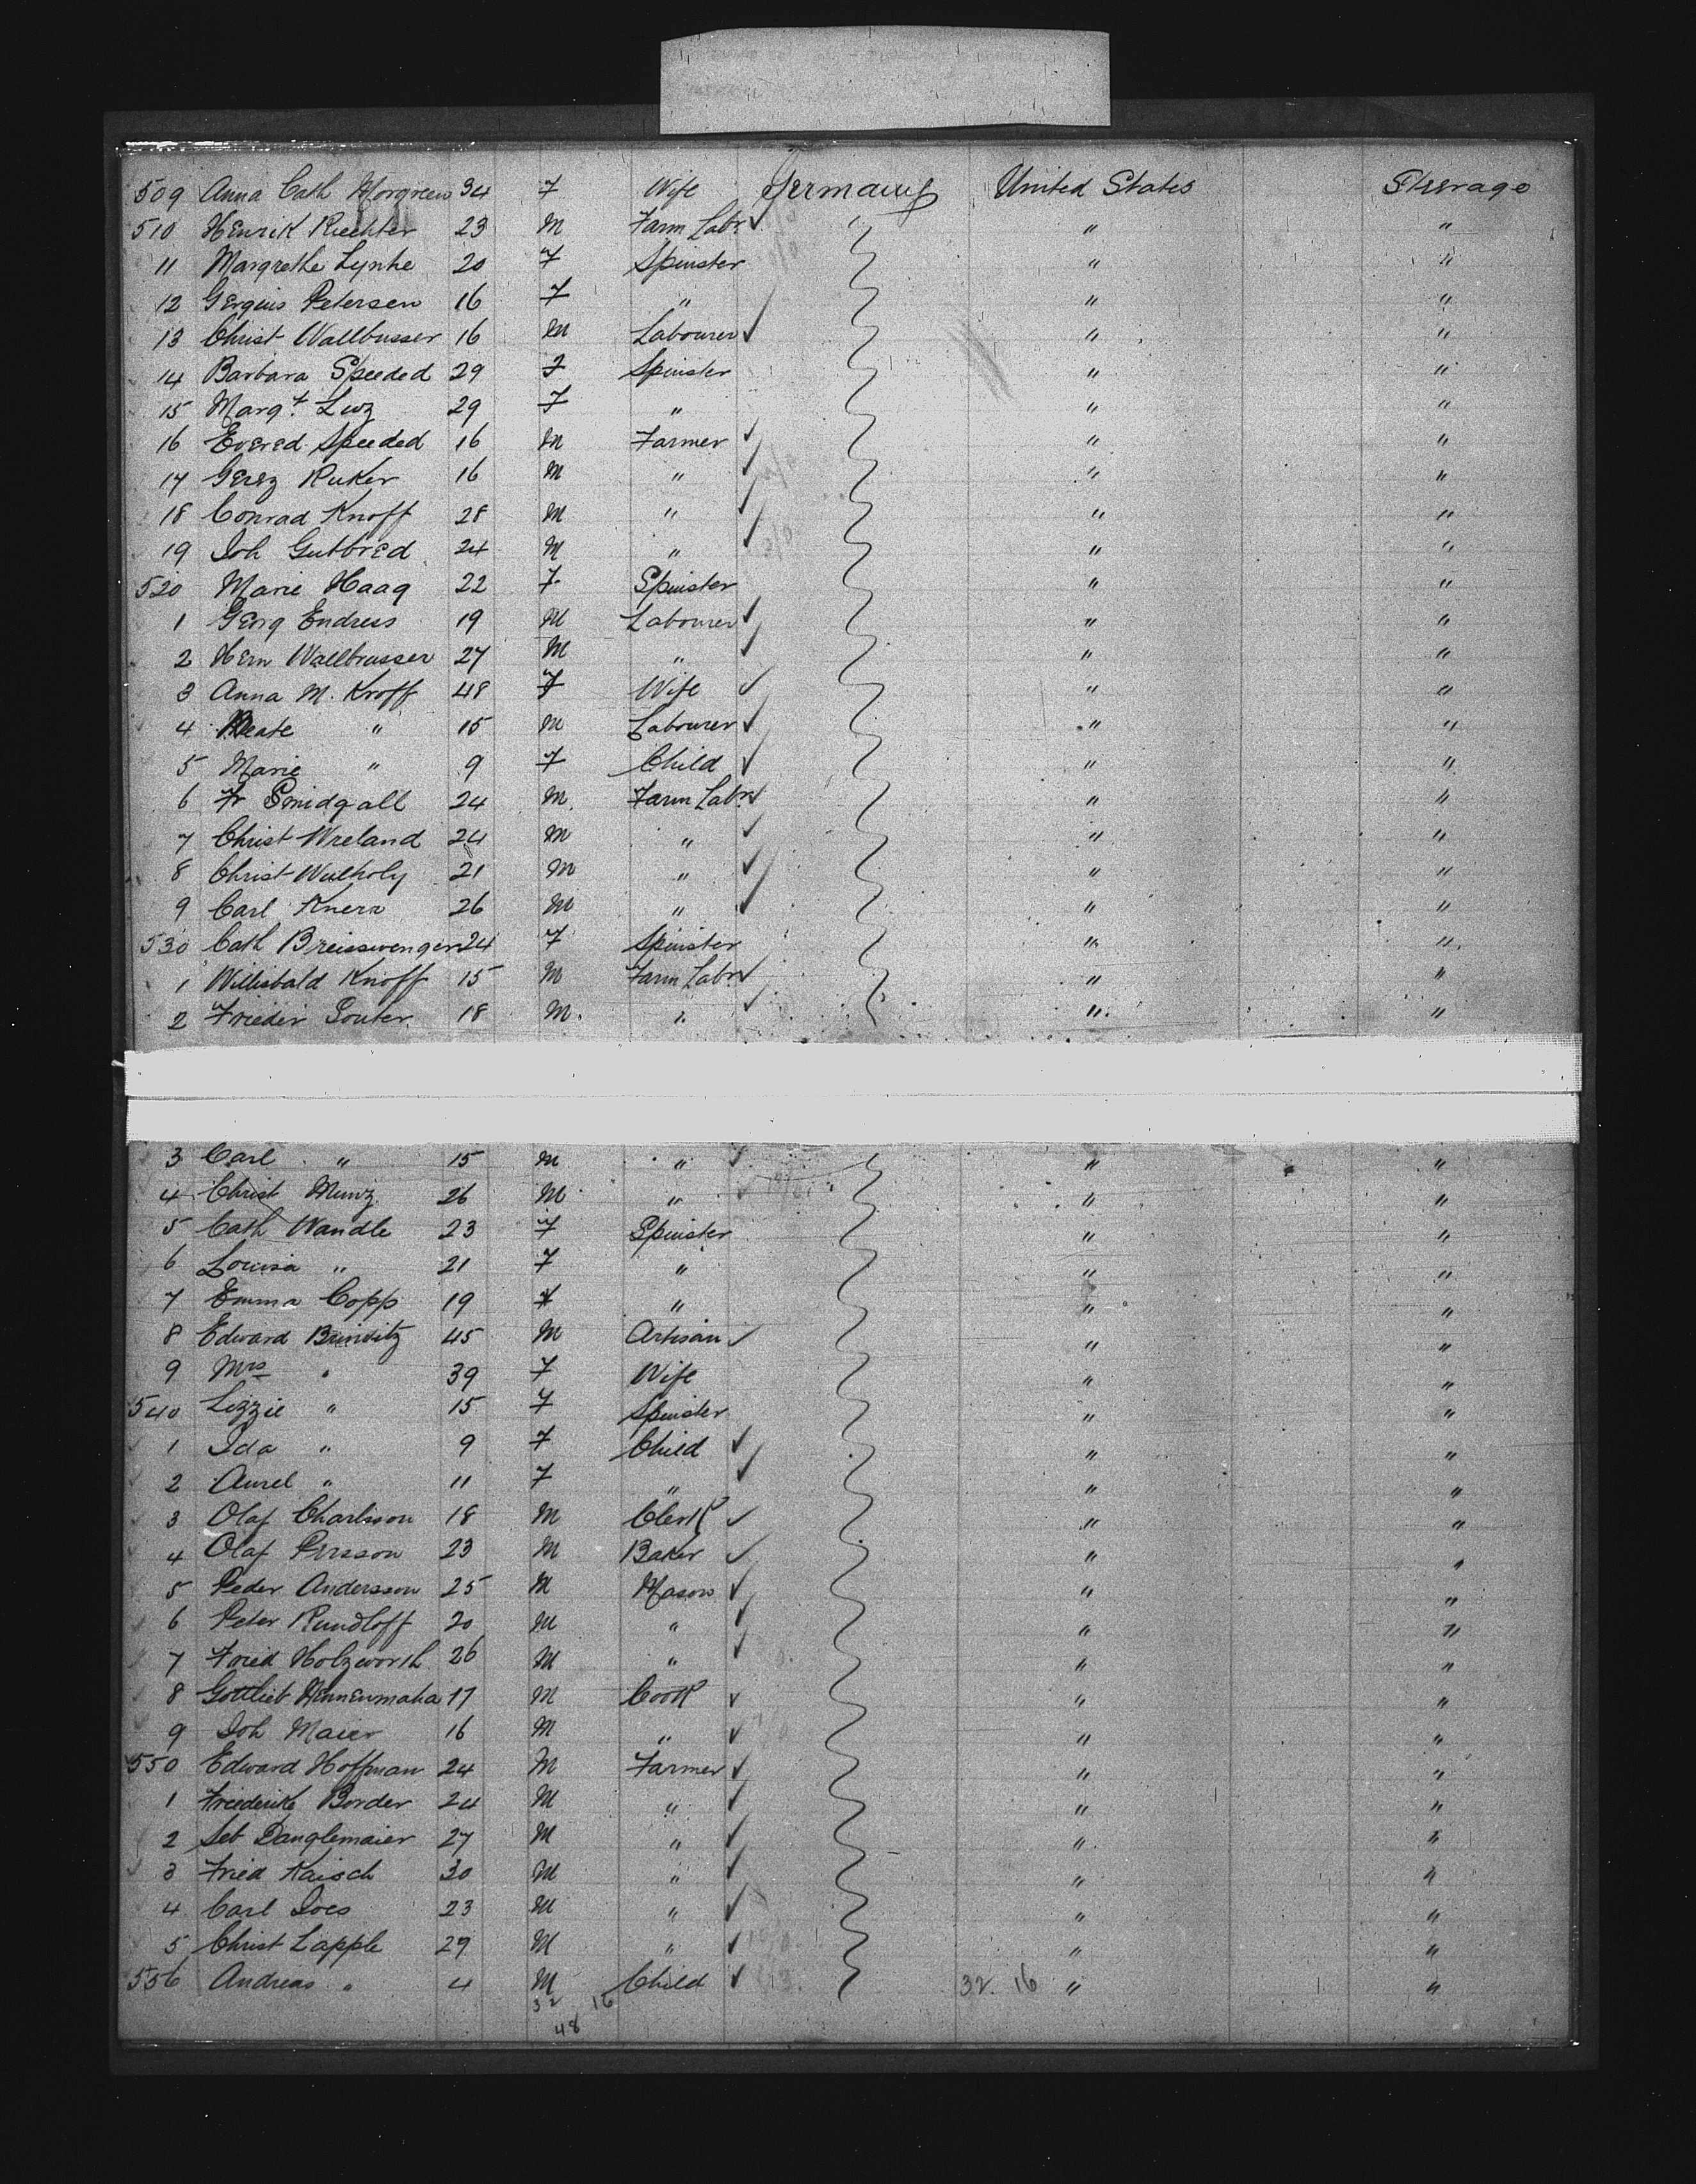 509 Anna Cath Morgreen 34 F Wife Germany United States Steerage
510 Henrik Riechter 23 M Farm Labr " " "
11 Margrethe Lynke 20 F Spinster " "
12 Petersen 16 F " " "
13 Christ Wallbusser 16 M Labourer " "
14 Barbara Speeded 29 F Spinster " "
15 Margt Luz 29 F " " "
16 Evered Speeded 16 M Farmer " "
17 Gerez Ruker 16 M " " "
18 Conrad Knoff 28 M " " "
19 Joh Gutbred 24 M " " "
520 Marie Haag 22 F Spinster " "
1 Georg Endress 19 M Labourer " "
2 Hern Wallbrusser 27 M " " "
3 Anna M. Kroff 48 F Wife " "
4 Beate " 15 M Labourer " "
5 Marie " 9 F Child " "
6 Fr Smidgall 24 M Farm Labr " "
7 Christ Wreland 24 M " " "
8 Christ 21 M " " "
9 Carl Knerr 26 M " " "
530 Cath Breisswenger 24 F Spinster " "
1 Willisbald Knoff 15 M Farm Labr " "
2 Frieder Souter 18 M " " "
3 Carl " 15 M " " "
4 Christ Munz 26 M " " "
5 Cath Wandle 23 F Spinster " "
6 Louisa " 21 F " " "
7 Emma Copp 19 F " " "
8 Edward 45 M Artisan " "
9 Mrs " 39 F Wife " "
540 Lizzie " 15 F Spinster " "
1 Ida " 9 F Child " "
2 Aurel " 11 F " " "
3 Olaf Charlsson 18 M Clerk " "
4 Olaf Persson 23 M Baker " "
5 Peder Andersson 25 M Mason " "
6 Peter Rundloff 20 M " " "
7 Fried Holzworth 26 M " " "
8 Gottlieb Hennenmaha 17 M Cook " "
9 Joh Maier 16 M " " "
550 Edward Hoffman 24 M Farmer " "
1 Friederike Border 24 M " " "
2 Seb Danglemaier 27 M " " "
3 Fried Kaisch 30 M " " "
4 Carl Joes 23 M " " "
5 Christ Lapple 29 M " " "
556 Andreas " 4 M Child 32 16 " "
32 16
48